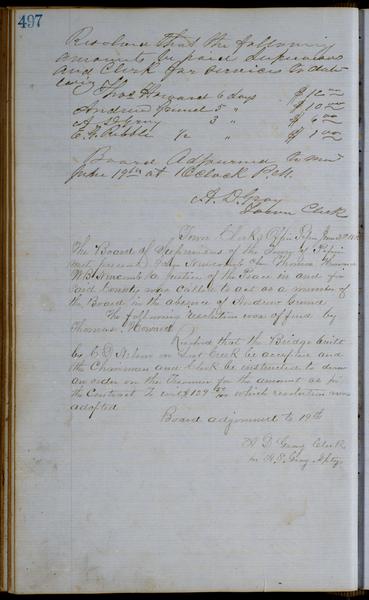 497
Resolved That the following
amounts be paid Supervisors
and Clerk for services to date
Thos Howard 6 days $12 00
Andrew 5 " $10 00
A D Gray 3 " $6 00
E. R. Ribble 1/2 " $1 00
Board Adjourned to meet
June 19th at 1 Oclock P.M.
A. D. Gray
Town Clerk
Town Clerks Office Pepin June
The Board of Supervisors of the Town of Pepin
met present John Newcomb Chn Thomas Howard
W.B. Newcomb a Justice of the Peace in and for
said County was called to act as a member of
the Board in the absence of Andrew
The following resolution was offered by
Thomas Howard
Resolved that the Bridge built
by C D Nelson on Lost Creek be accepted and
the Chairman and Clerk be instructed to draw
an order on the Treasurer for the amount as per
the Contract to wit $129 which resolution was
adopted
Board adjourned to 19th
A D Gray Clerk
per H. P. Gray Dpty